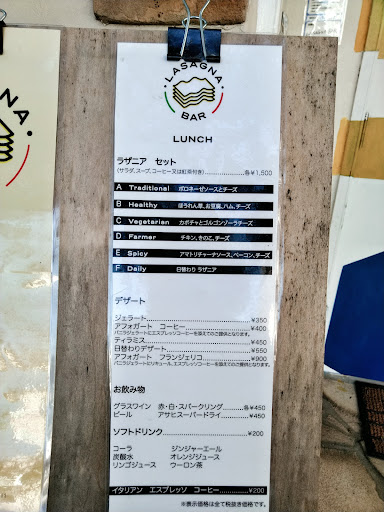 LASAGNA
BAR
LUNCH
ラザニア セット
(サラダ、スープ、コーヒー又は紅茶付き)..................各¥1,500
A Traditional ボロネーゼソースとチーズ
B Healthy ほうれん草、お豆腐、ハム、チーズ
C Vegetarian カボチャとゴルゴンゾーラチーズ
D Farmer チキン、きのこ、チーズ
E Spicy アマトリチャーナソース、ベーコン、チーズ
F Daily 日替わり ラザニア
デザート
ジェラート..................¥350
アフォガート コーヒー..................¥400
バニラジェラートにエスプレッソコーヒーを添えてのご提供となります。
ティラミス..................¥450
日替わりデザート..................¥550
アフォガート フランジェリコ..................¥900
バニラジェラートにリキュール、エスプレッソコーヒーを添えてのご提供となります。
お飲み物
グラスワイン 赤・白・スパークリング..........各¥450
ビール アサヒスーパードライ..........¥450
ソフトドリンク..................¥200
コーラ ジンジャーエール
炭酸水 オレンジジュース
リンゴジュース ウーロン茶
イタリアン エスプレッソ コーヒー..........¥200
※表示価格は全て税抜き価格です。
NA